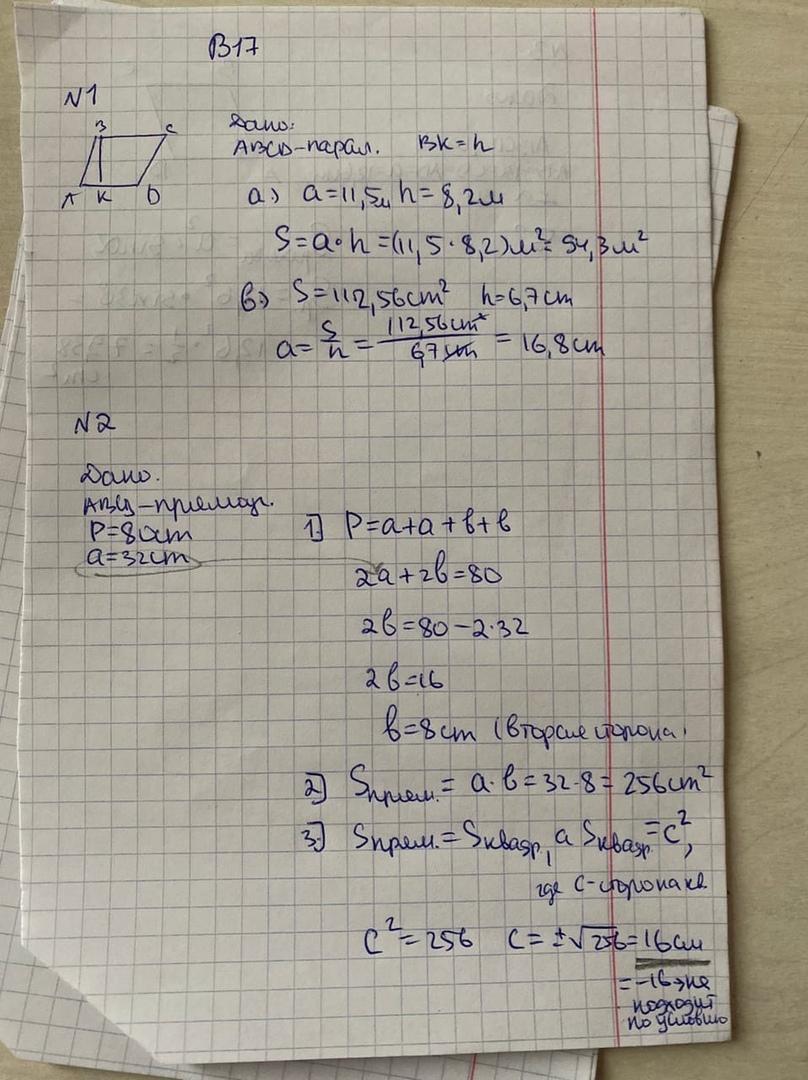 В17
N1
B C
A K D
Дано:
ABCD-парал. BK=h
а) a=11,5м h=8,2м
S=a·h=(11,5·8,2)м²=94,3м²
в) S=112,56cm² h=6,7cm
a=S/h=112,56cm²/6,7cm=16,8cm
N2
Дано.
ABCD-прямоуг.
P=80cm
a=32cm
1) P=a+a+в+в
2a+2в=80
2в=80-2·32
2в=16
в=8cm (вторая сторона)
2) Sпрям.=a·в=32·8=256cm²
3) Sпрям.=Sквадр, а Sквадр=c²,
где c-сторона кв
c²=256 c=±√256=16см
=-16→не
подходит
по условию